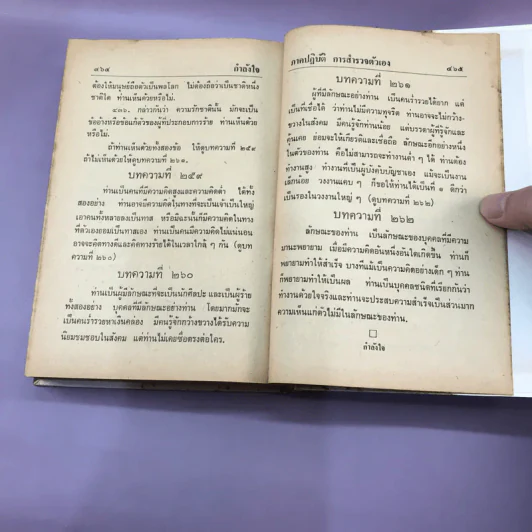 ๔๖๔ กำลังใจ
ต้องให้มนุษย์ถือตัวเป็นพลโลก ไม่ต้องถือว่าเป็นชาติหนึ่ง
ชาติใด ท่านเห็นด้วยหรือไม่.
๔๓๖. กล่าวกันว่า ความรักชาตินั้น มักจะเป็น
ข้ออ้างหรือข้อแก้ตัวของผู้ที่ประกอบการร้าย ท่านเห็นด้วย
หรือไม่.
ถ้าท่านเห็นด้วยทั้งสองข้อ ให้ดูบทความที่ ๒๕๙
ถ้าไม่เห็นด้วยให้ดูบทความที่ ๒๖๑.
บทความที่ ๒๕๙
ท่านเป็นคนที่มีความคิดสูงและความคิดต่ำ ได้ทั้ง
สองอย่าง ท่านอาจมีความคิดในทางที่จะเป็นเจ้าเป็นใหญ่
เอาคนทั้งหลายลงเป็นทาส หรือมิฉะนั้นก็มีความคิดในทาง
ที่ตัวเองยอมเป็นทาสเขา ท่านเป็นคนมีความคิดไม่แน่นอน
อาจจะคิดทางดีและคิดทางร้ายได้ในเวลาใกล้ ๆ กัน (ดูบท
ความที่ ๒๖๐)
บทความที่ ๒๖๐
ท่านเป็นผู้มีลักษณะที่จะเป็นนักศิลปะ และเป็นผู้ร้าย
ทั้งสองอย่าง บุคคลที่มีลักษณะอย่างท่าน โดยมากมักจะ
เป็นคนร่ำรวยหาเงินคล่อง มีคนรู้จักกว้างขวางได้รับความ
นิยมชมชอบในสังคม แต่ท่านไม่เคยซื่อตรงต่อใคร.
ภาคปฏิบัติ การสำรวจตัวเอง ๔๖๕
บทความที่ ๒๖๑
ผู้ที่มีลักษณะอย่างท่าน เป็นคนร่ำรวยได้ยาก แต่
เป็นที่เชื่อได้ ว่าท่านไม่มีความทุจริต ท่านอาจจะไม่กว้าง-
ขวางในสังคม มีคนรู้จักท่านน้อย แต่บรรดาผู้ที่รู้จักและ
คุ้นเคย ย่อมจะให้เกียรติและเชื่อถือ ลักษณะอีกอย่างหนึ่ง
ในตัวของท่าน คือไม่สามารถจะทำงานต่ำ ๆ ได้ ท่านต้อง
ทำงานสูง ทำงานที่เป็นผู้บังคับบัญชาเอง แม้จะเป็นงาน
เล็กน้อย วงงานแคบ ๆ ก็ขอให้ท่านได้เป็นที่ ๑ ดีกว่า
เป็นรองในวงงานใหญ่ ๆ (ดูบทความที่ ๒๖๒)
บทความที่ ๒๖๒
ลักษณะของท่าน เป็นลักษณะของบุคคลที่มีความ
มานะพยายาม เมื่อมีความคิดอันหนึ่งอันใดเกิดขึ้น ท่านก็
พยายามทำให้สำเร็จ บางทีแม้เป็นความคิดอย่างเด็ก ๆ ท่าน
ก็พยายามทำให้เป็นผล ท่านเป็นบุคคลชนิดที่เรียกกันว่า
ทำงานด้วยใจจริงและท่านจะประสบความสำเร็จเป็นส่วนมาก
ความเห็นแก่ตัวไม่มีในลักษณะของท่าน.
กำลังใจ